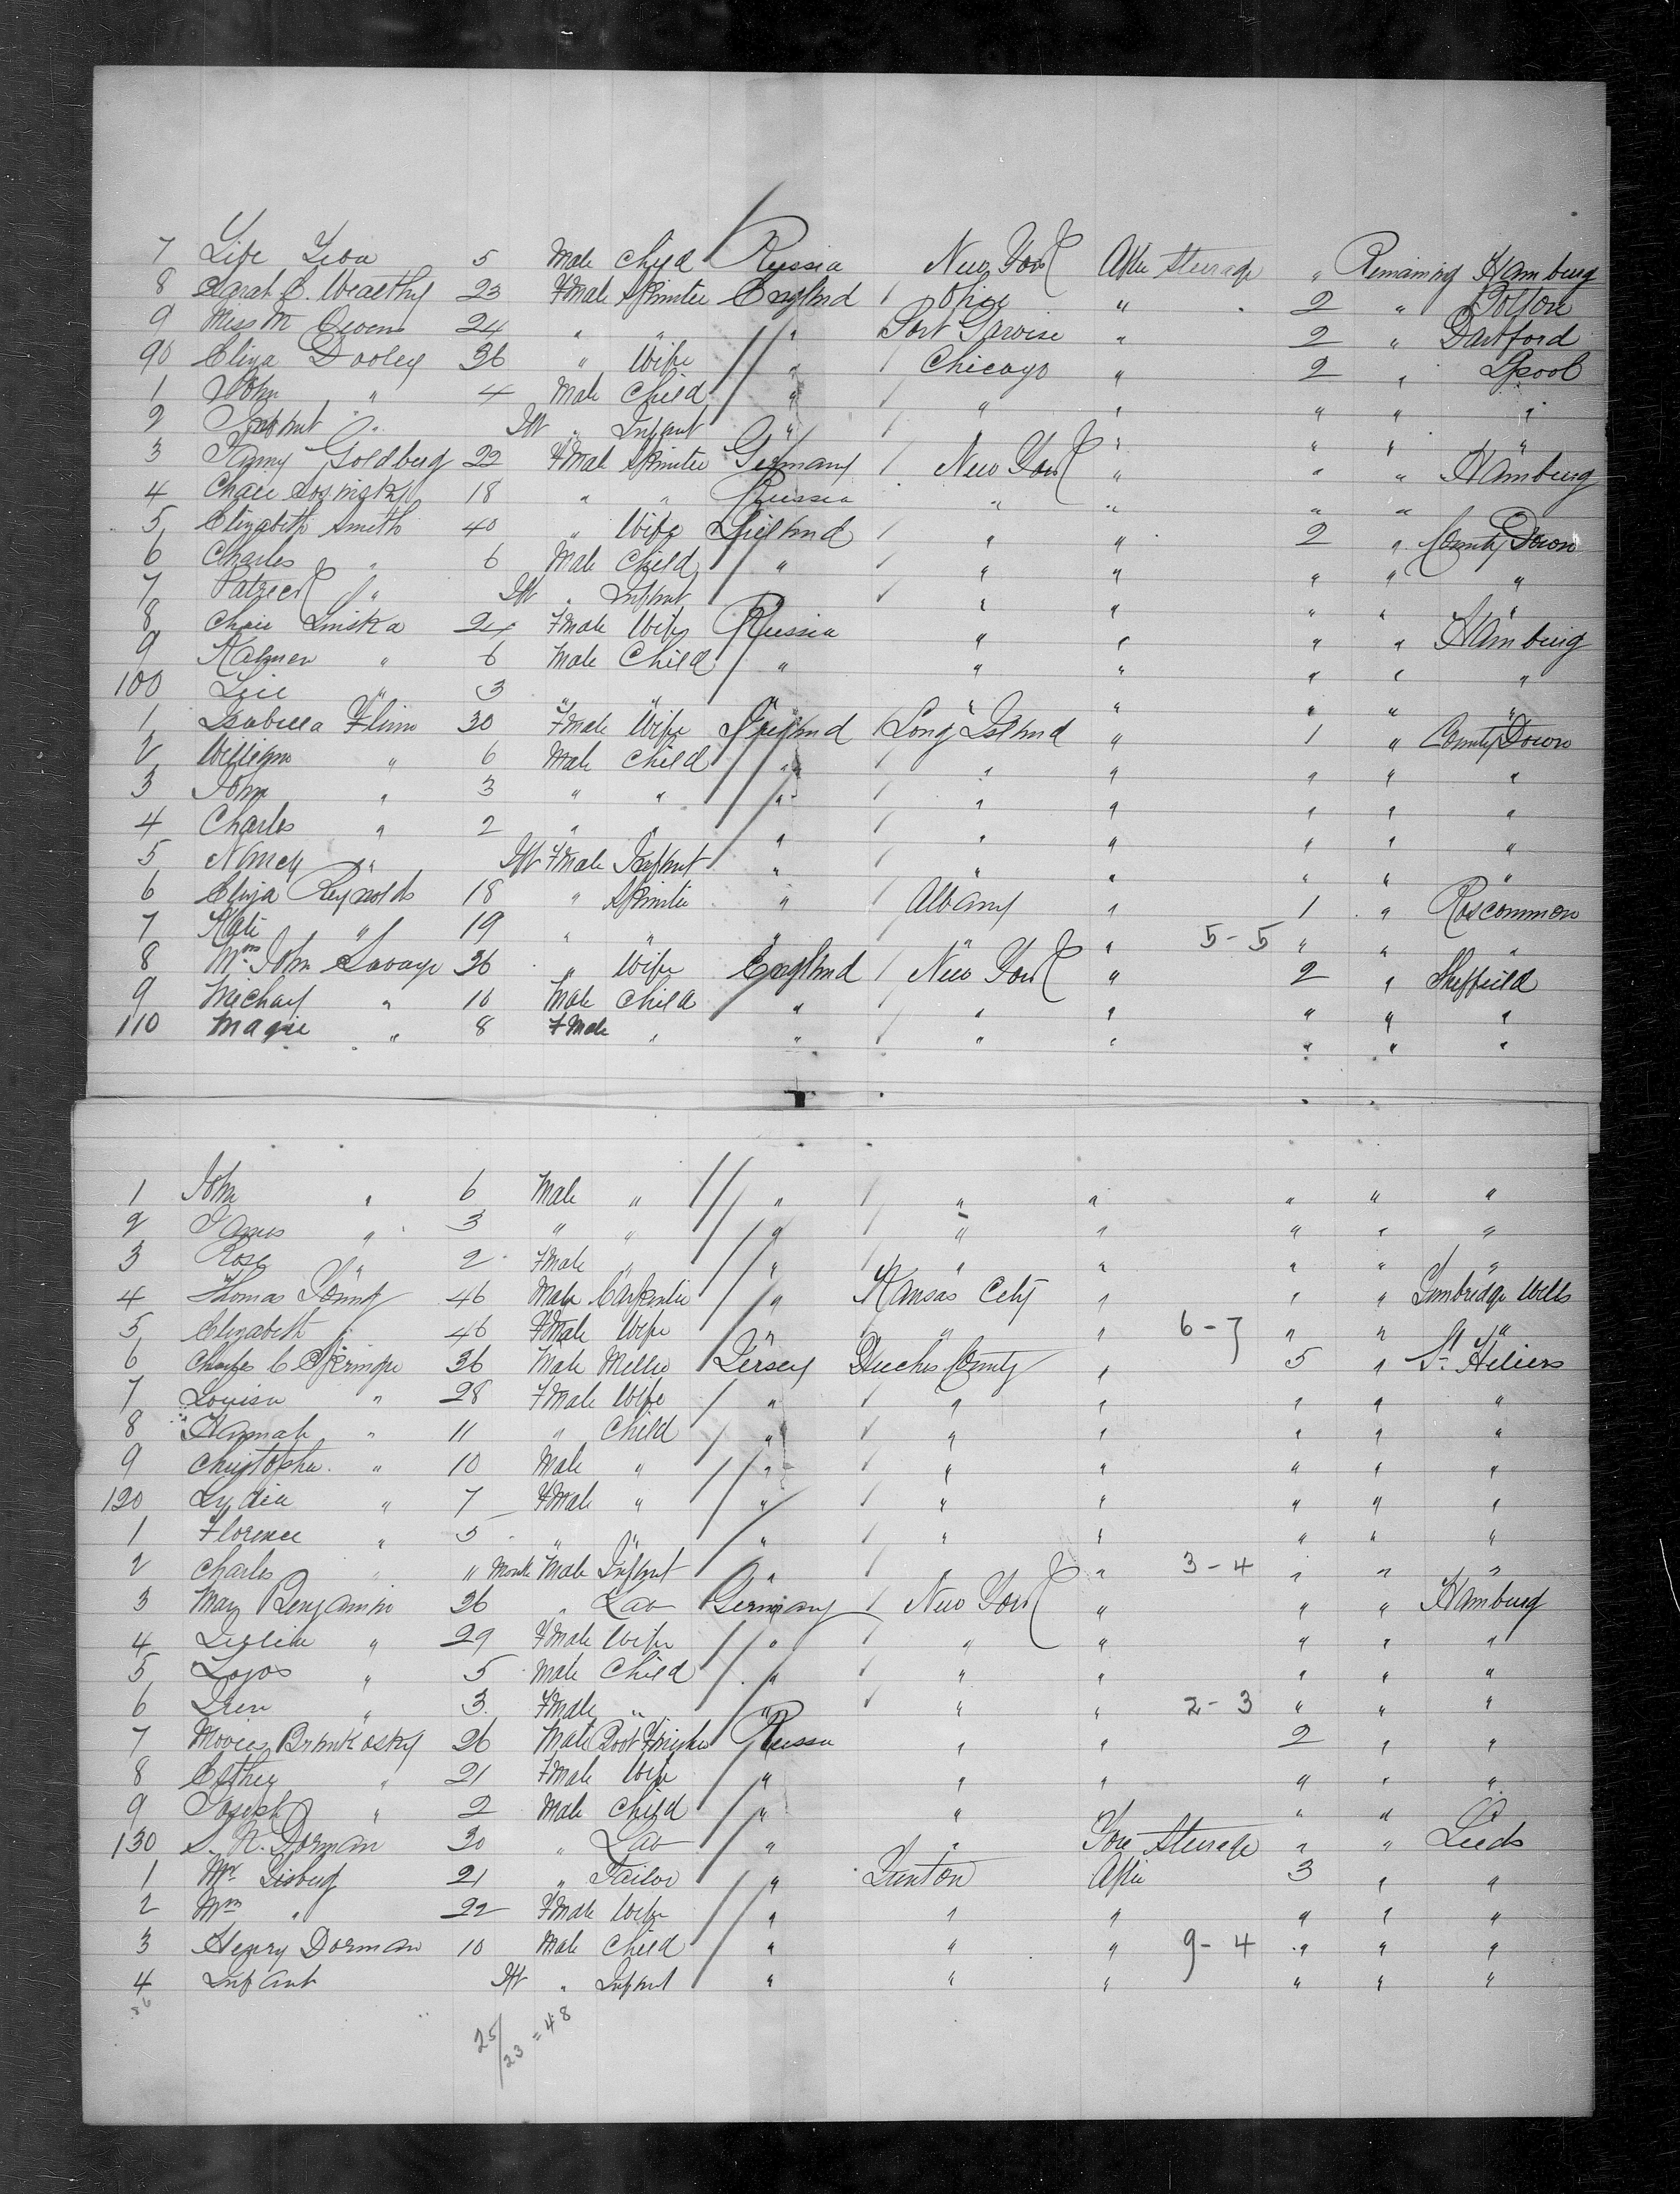 7 5 Male Child Russia New York Afte Steerage " Remaining Hamburg
8 Sarah E. Wealthy 23 Fmale Spinster England Ohio " 2 " Bolton
9 Miss M Owens 24 " " " Port " 2 " Dartford
90 Eliza Dooley 36 " Wife " Chicago " 2 " Lpool
1 John " 4 Male Child " " " " " "
2 Infant " Inft " Infant " " " " "
3 Goldberg 22 Fmale Spinster Germany New York " " " Hamburg
4 Chaie 18 " " Russia " " " "
5 Elizabeth Smith 40 " Wife Ireland " " 2 " County Down
6 Charles " 6 Male Child " " " " " "
7 Patrick " Inft " Infant " " " " "
8 Chaie Linska 24 Fmale Wife Russia " " " " Hamburg
9 Kalmen " 6 Male Child " " " " " "
100 " 3 " " " " " " " "
1 Isabella Flinn 30 Fmale Wife Ireland Long Island " 1 " County Down
2 William " 6 Male Child " " " " " "
3 John " 3 " " " " " " " "
4 Charles " 2 " " " " " " " "
5 Nancy " Inft Fmale Infant " " " " " "
6 Eliza Reynolds 18 " Spinster " Albany " 1 " Roscommon
7 Kate " 19 " " " " " 5-5 " " "
8 Mrs John Savage 36 " Wife England New York " 2 " Sheffield
9 Michael " 10 Male Child " " " " " "
110 Magie " 8 Fmale " " " " " " "
1 John " 6 Male " " " " " " "
2 James " 3 " " " " " " " "
3 Rose " 2 Fmale " " " " " " "
4 Thomas Young 46 Male Carpenter " Kansas City " " " Tunbridge Wells
5 Elizabeth " 46 Fmale Wife " " " 6-7 " " "
6 Charles C 36 Male Miller Jersey Duches County " 5 " St Heliers
7 Louisa " 28 Fmale Wife " " " " " "
8 Hannah " 11 " Child " " " " " "
9 Christopher " 10 Male " " " " " " "
120 Lydia " 7 Fmale " " " " " " "
1 Florence " 5 " " " " " " " "
2 Charles " 11 Month Male Infant " " " 3-4 " " "
3 Benjamin 36 " Lab Germany New York " " " Hamburg
4 " 29 Fmale Wife " " " " " "
5 Lajos " 5 Male Child " " " " " "
6 Iren " 3 Fmale " " " " 2-3 " " "
7 26 Male Boot Finisher Russia " " 2 " "
8 Esther " 21 Fmale Wife " " " " " "
9 Joseph " 2 Male Child " " " "
130 S. N. Dorman 30 " Lab " " Fore Steerage " " Leeds
1 Mr 21 " Tailor " Afte 3 " "
2 Mrs " 22 Fmale Wife " " " " " "
3 Henry Dorman 10 Male Child " " " 9-4 " " "
4 Infant Inft " Infant " " " " " "
25/23 = 48